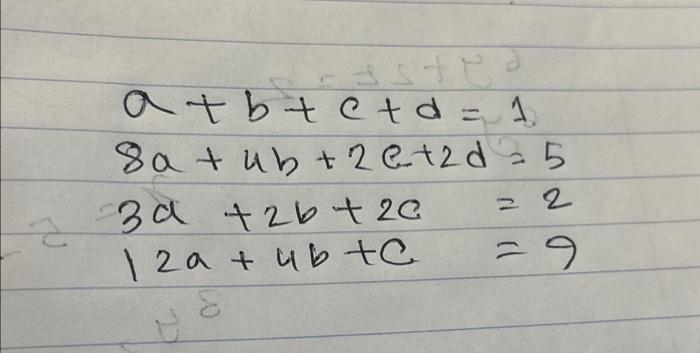 a + b + c + d = 1
8a + 4b + 2c + 2d = 5
3a + 2b + 2c = 2
12a + 4b + c = 9